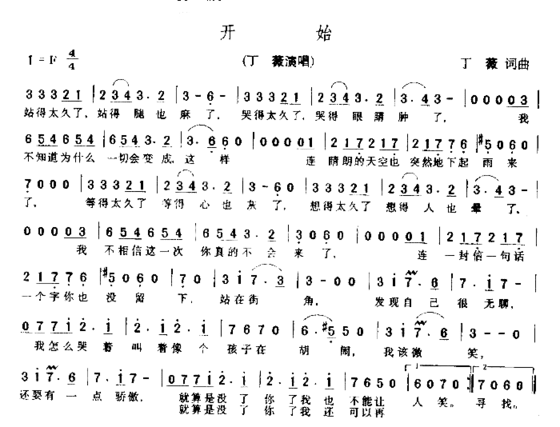 开 始
1=F 4/4 (丁 薇演唱) 丁 薇 词曲
3 3 3 2 1 | 2 3 4 3. 2 | 3 - 6 - | 3 3 3 2 1 | 2 3 4 3. 2 | 3. 4 3 - | 0 0 0 0 3 |
站得太久了, 站得 腿 也 麻 了, 哭得太久了, 哭得 眼 睛 肿 了, 我
6 5 4 6 5 4 | 6 5 4 3. 2 | 3. 6 6 0 | 0 0 0 0 1 | 2 1 7 2 1 7 | 2 1 7 7 6 | #5 0 6 0 |
不知道为什么 一切会变成 这 样 连 晴朗的天空也 突然地下起 雨 来
7 0 0 0 | 3 3 3 2 1 | 2 3 4 3. 2 | 3 - 6 0 | 3 3 3 2 1 | 2 3 4 3. 2 | 3. 4 3 - |
了, 等得太久了 等得 心 也 灰 了, 想得太久了 想得 人 也 晕 了,
0 0 0 0 3 | 6 5 4 6 5 4 | 6 5 4 3. 2 | 3 0 6 0 | 0 0 0 0 1 | 2 1 7 2 1 7 |
我 不相信这一次 你真的不 会 来 了, 连 一封信一句话
2 1 7 7 6 | #5 0 6 0 | 7 0 | 3 1 7. 3 | 3 - - 0 | 3 1 7. 6 | 7. 1 7 - |
一个字你也 没 留 下, 站在街 角, 发现自 己 很 无聊,
0 7 7 1 2. 1 | 2. 1 2. 1 | 7 6 7 0 | 6. #5 5 0 | 3 1 7. 6 | 3 - - 0 |
我怎么哭 着 叫 着像 个 孩子在 胡 闹, 我该微 笑,
3 1 7. 6 | 7. 1 7 - | 0 7 7 1 2. 1 | 2. 1 2. 1 | 7 6 5 0 | 6 0 7 0 :| 7 0 6 0 |
还要有 一 点 骄傲, 就算是没 了 你 了 我 也 不能让 人 笑。 寻 找。
就算是没 了 你 了 我 还 可以再